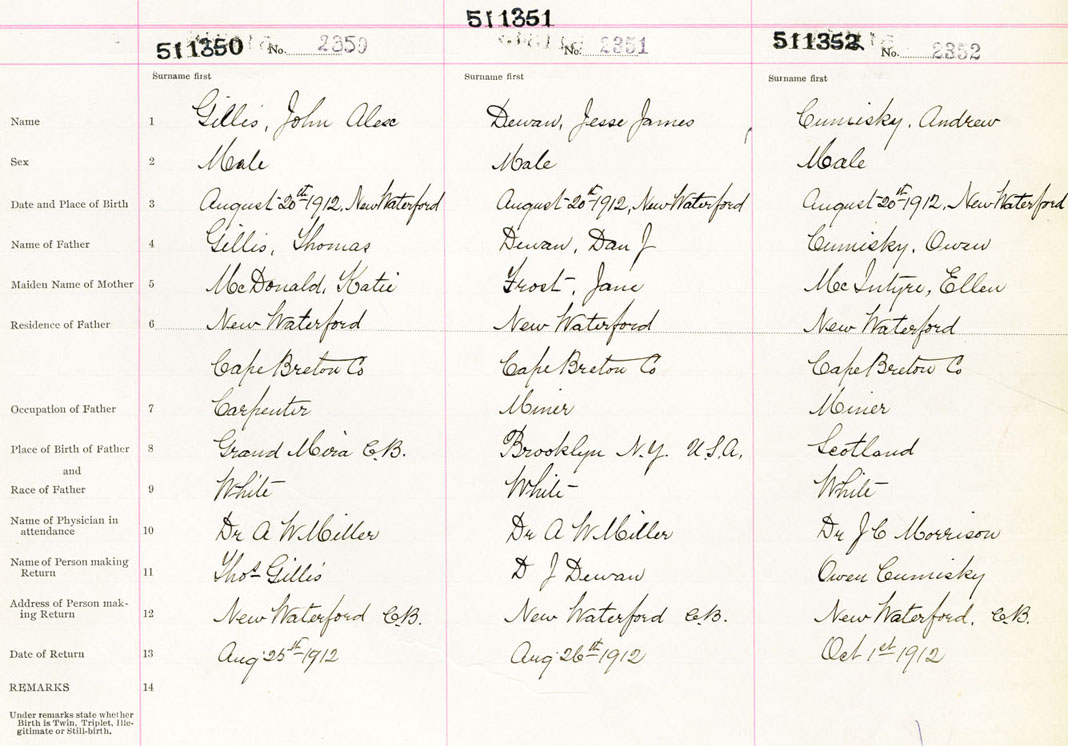 511351
511350 No. 2350 No. 2351 511352 No. 2352
Surname first Surname first Surname first
Name 1 Gillis, John Alex Dewan, Jesse James Cumisky, Andrew
Sex 2 Male Male Male
Date and Place of Birth 3 August 20th 1912, New Waterford August 20th 1912, New Waterford August 20th 1912, New Waterford
Name of Father 4 Gillis, Thomas Dewan, Dan J Cumisky, Owen
Maiden Name of Mother 5 McDonald, Katie Frost, Jane McIntyre, Ellen
Residence of Father 6 New Waterford New Waterford New Waterford
Cape Breton Co Cape Breton Co Cape Breton Co
Occupation of Father 7 Carpenter Miner Miner
Place of Birth of Father 8 Grand Mira C.B. Brooklyn N.Y. U.S.A. Scotland
and
Race of Father 9 White White White
Name of Physician in
attendance 10 Dr A W Miller Dr A W Miller Dr J C Morrison
Name of Person making
Return 11 Thos Gillis D J Dewan Owen Cumisky
Address of Person mak-
ing Return 12 New Waterford C.B. New Waterford C.B. New Waterford, C.B.
Date of Return 13 Aug 25th 1912 Aug 26th 1912 Oct 1st 1912
REMARKS 14
Under remarks state whether
Birth is Twin, Triplet, Ille-
gitimate or Still-birth.